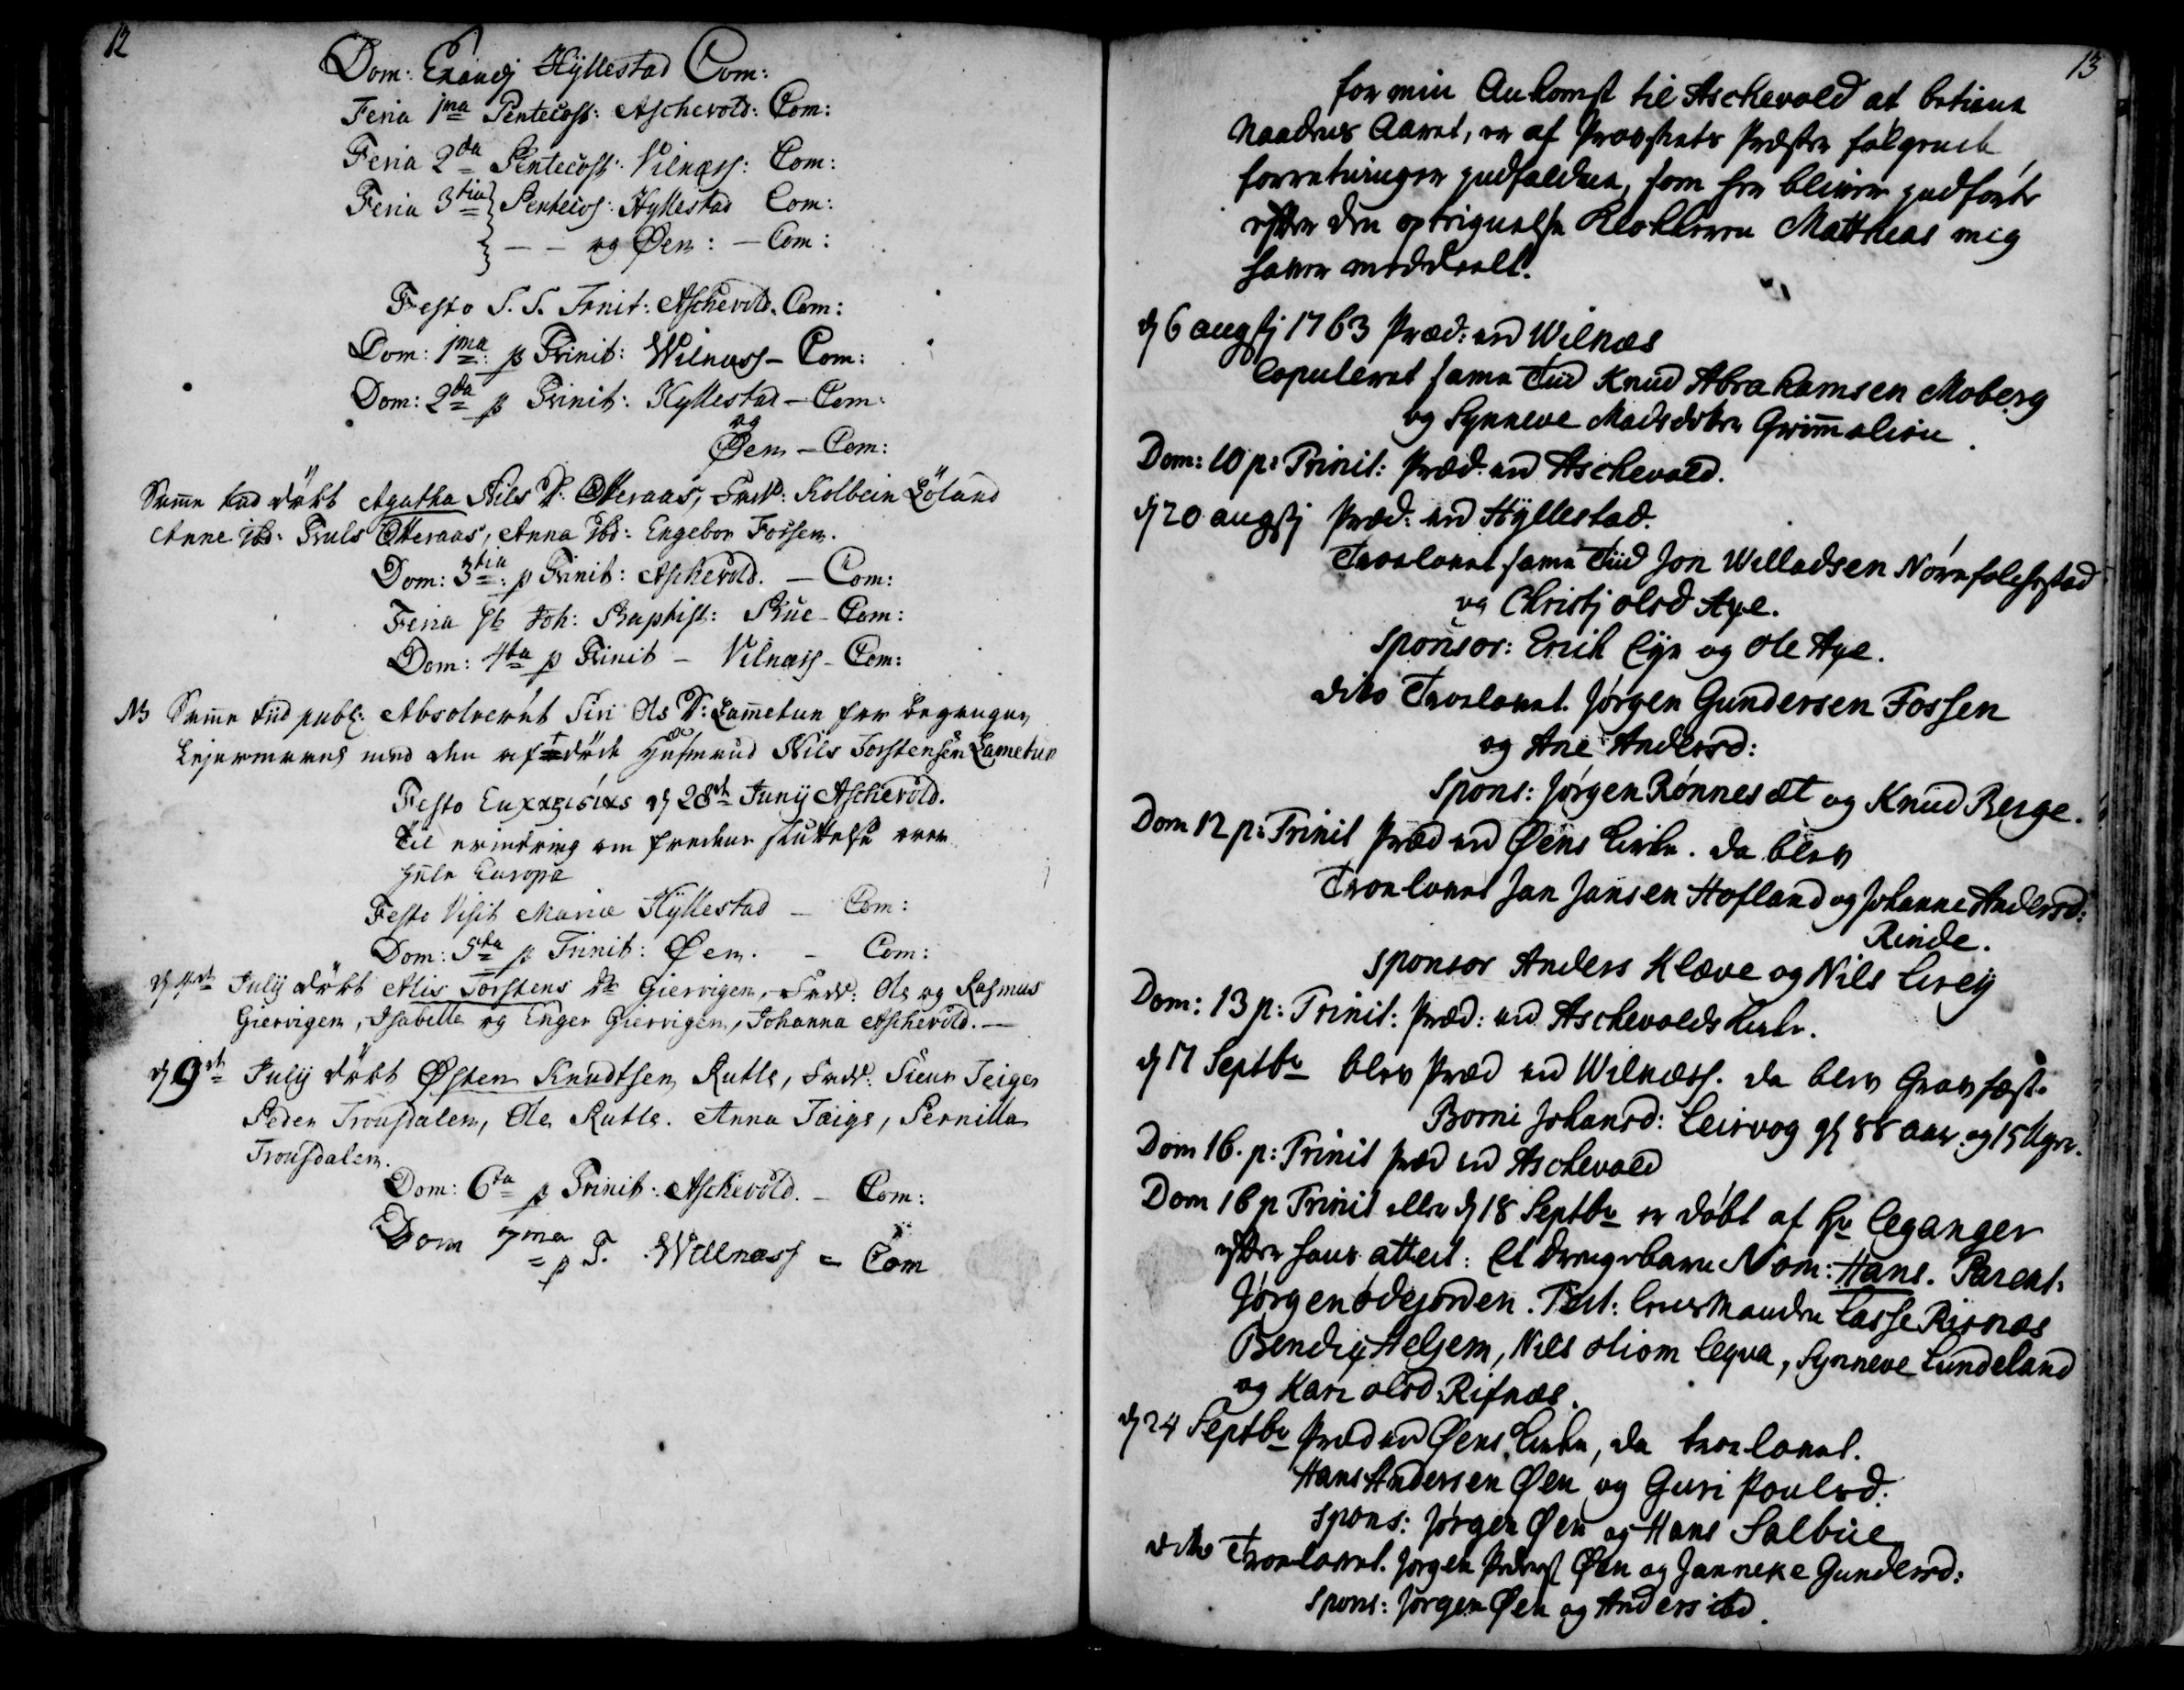 12
Dom: Exaudj Hÿllestad Com:
Feria 1ma Pentecost: Aschevold: Com:
Feria 2da Pentecost: Vilnæss: Com:
Feria 3tia Pentecos: Hyllestad Com:
— — og Øen: — Com:
Festo S. S. Trinit: Aschevold. Com:
Dom: 1ma p Trinit: Wilnæss — Com:
Dom: 2da p Trinit: Hyllestad — Com:
og
Øen — Com:
Samme tiid døbt Agatha Nils D: Otteraas, Fadd: Kolbein Löland
Anne ibd: Truls Otteraas, Anna ibd: Engebor Fossen.
Dom: 3tia p Trinit: Aschevold. — Com:
Feria St Joh: Baptist: Bue — Com:
Dom: 4ta p Trinit — Vilnæss — Com:
NB Samme tiid publ: Absolveret Siri Ols D: Lammetun for begangen
Lejermaal med den afdøde Husmand Nils Torstensen Lametun
Festo Ευχαριςίας d 28de Junij Aschevold.
til erindring om fredens sluttelse over
hele Europa
Festo Visit Mariæ Hÿllestad — Com:
Dom: 5ta p Trinit: Øen. — Com:
d 4de Julij døbt Alis Torstens Dr Giervigen, Fadd: Ole og Rasmus
Giervigen, Isabelle og Inger Giervigen, Johanna Aschevold. —
d 9de Julij døbt Østen Knudtsen Rutle, Fadd: Siur Teigen
Peder Trousdalen, Ole Rutle. Anna Taige, Pernilla
Trousdalen.
Dom: 6ta p Trinit: Aschevold. — Com:
Dom 7ma p T. Willnæss = Com
13
for min Ankomst til Aschevold at betiene
Naadens Aaret, er af Provstiets Præster følgende
forretninger indfaldne, som her bliver indført
efter den optegnelse Klokkeren Matthias mig
haver meddeelt.
d 6 augstj 1763 Præd: ved Wilnæs
Copuleret samme Tiid Knud Abrahamsen Moberg
og Synneve Madsdotter Grimmelien.
Dom: 10 p: Trinit: Præd: ved Aschevold.
d 20 augstj Præd: ved Hÿllestad.
Troelovet samme Tiid Jon Willadsen
og Christj olsd Aye.
Sponsor: Erich Eye og Ole Aye.
dito Troelovet. Jørgen Gundersen Fossen
og Ane Andersd:
Spons: Jørgen Rønneset og Knud Berge.
Dom 12 p: Trinit Præd ved Øens Kirke. da blev
Troelovet Jan Jansen Hofland og Johanne Andersd:
Rinde.
Sponsor Anders Klæve og Nils
Dom: 13 p: Trinit: Præd: ved Aschevolds Kirke.
d 17 Septbr blev Præd ved Wilnæss. da blev Gravfæst.
Borni Johansd: Leirvog gl 88 aar og 15 Uger.
Dom 16. p: Trinit præd ved Aschevold
Dom 16 p Trinit eller d 18 Septbr er døbt af Hr Leganger
efter hans attest: Et Drengebarn Nom: Hans. Parent.
Jørgen ødejorden. Test: Lensmanden Lasse Risnæs
Bendix Helsem, Nils Leqva, Synneve Lundeland
og Kari olsd Rifnæs.
d 24 Septbr Præd ved Øens Kirke, da troelovet.
Hans Andersen Øen og Guri Poulsd:
Spons: Jørgen Øen og Hans Salbue
dito Troelovet. Jørgen Øen og Janneke Gundersd:
Spons: Jørgen Øen og Anders ibd.